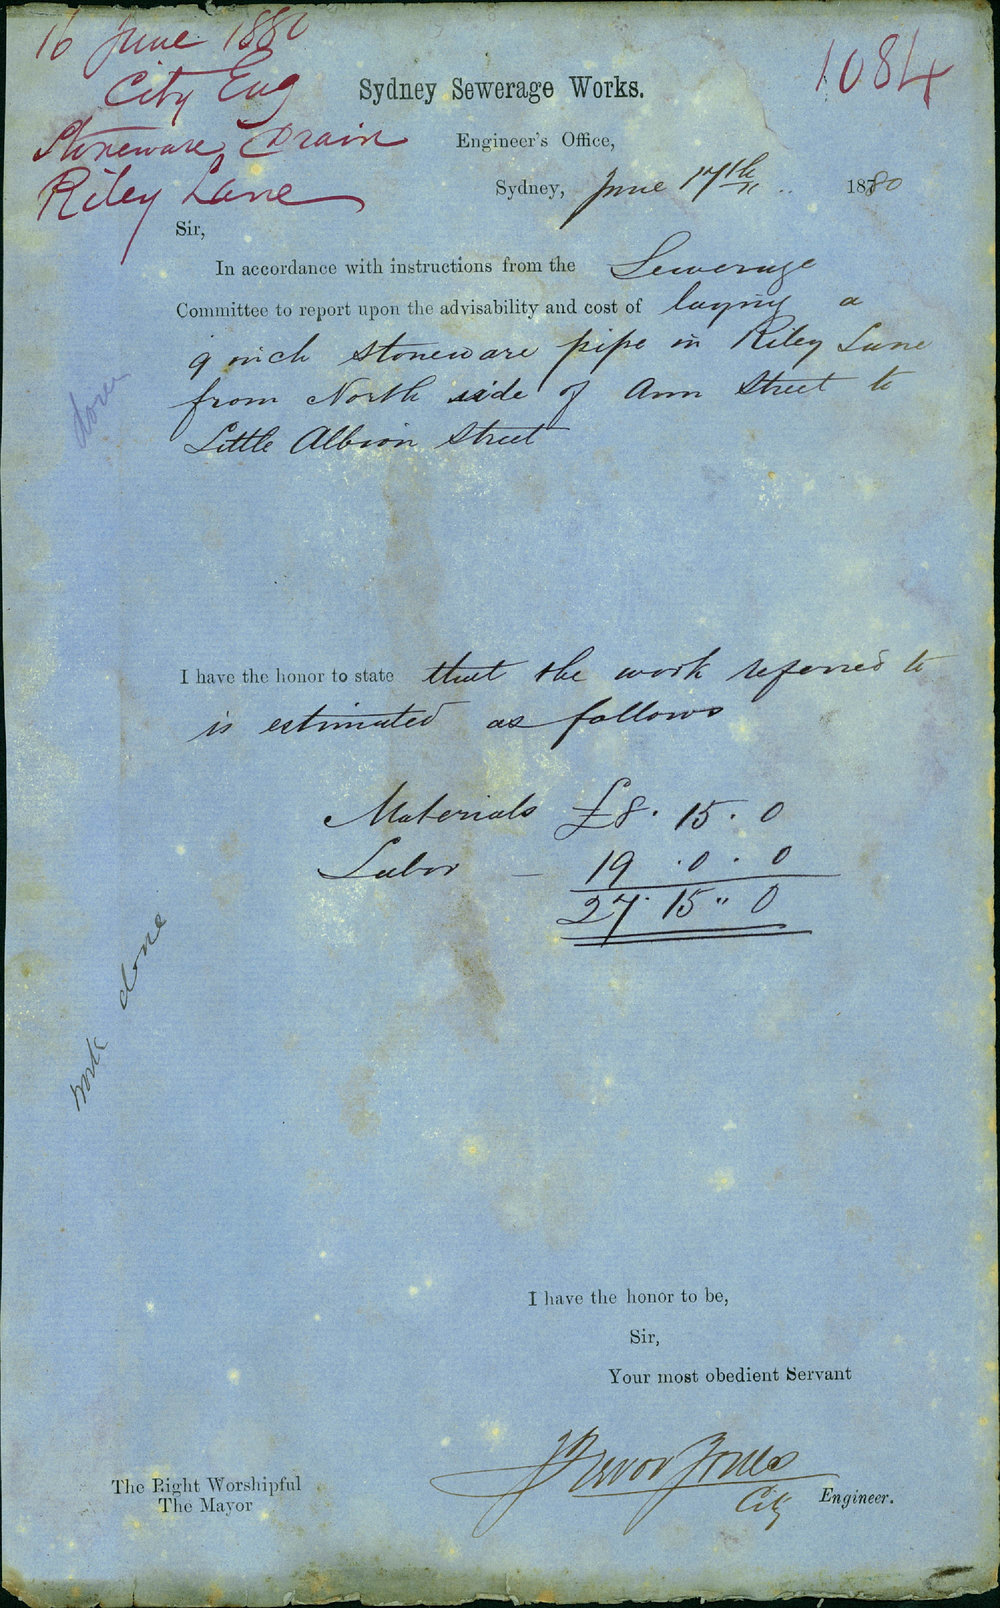 16 June 1880
City Eng
Stoneware Drain
Riley Lane
1084
Sydney Sewerage Works.
Engineer's Office,
Sydney, June 17th 1880
Sir,
In accordance with instructions from the Sewerage
Committee to report upon the advisability and cost of laying a
9 inch stoneware pipe in Riley Lane
from North side of Ann Street to
Little Albion Street
done
I have the honor to state that the work referred to
is estimated as follows
Materials £8 . 15 . 0
Labor — 19 . 0 . 0
27 . 15 " 0
work done
I have the honor to be,
Sir,
Your most obedient Servant
J Trevor Jones
City Engineer.
The Right Worshipful
The Mayor